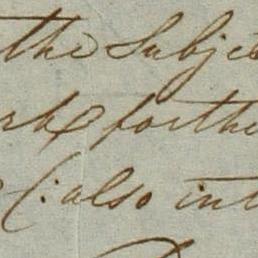 the Subje
rk forthe
(:also int